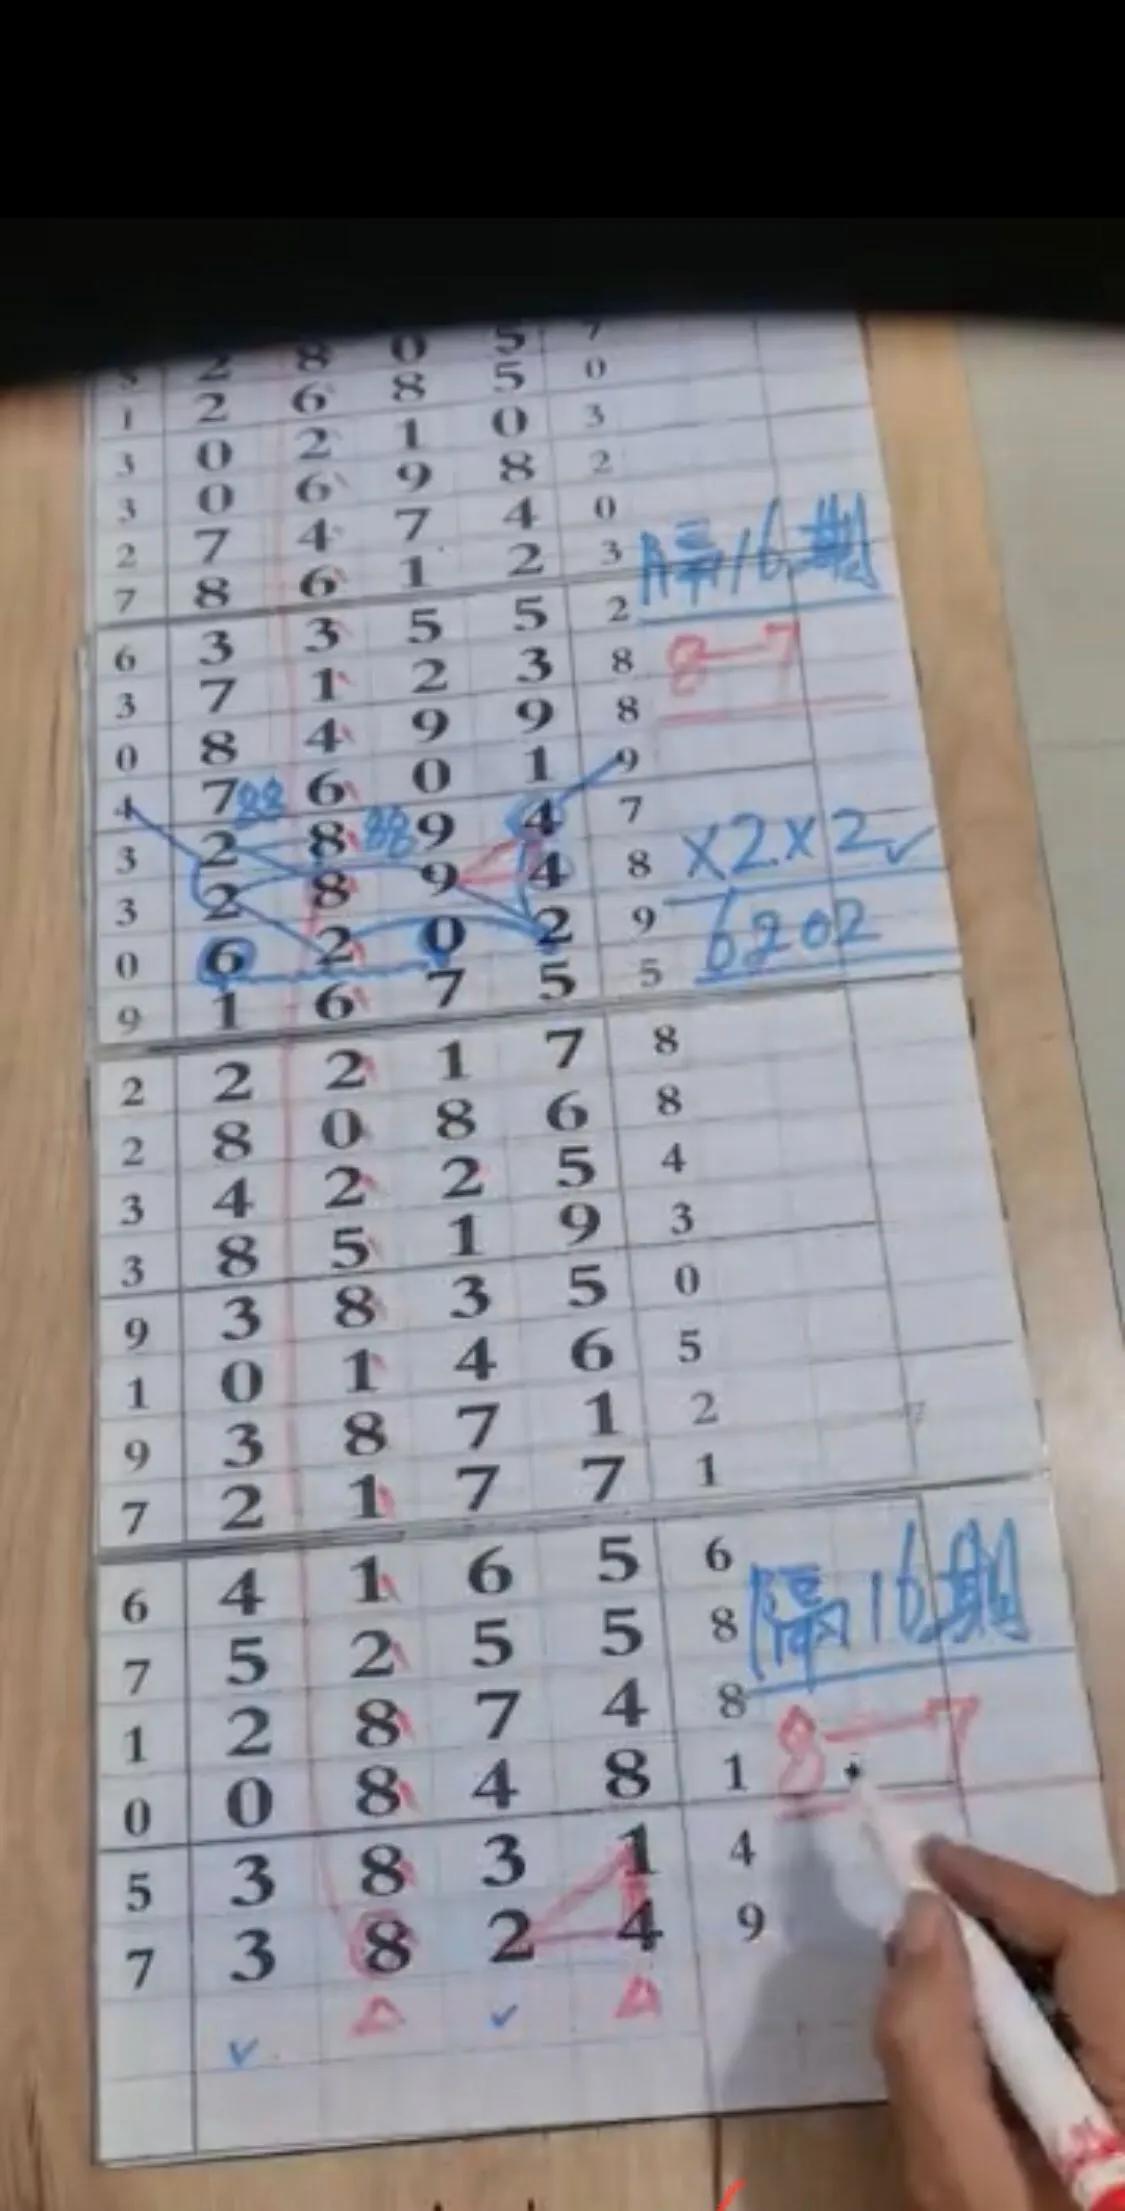 2 8 0 5 7
1 2 6 8 5 0
3 0 2 1 0 3
3 0 6 9 8 2
2 7 4 7 4 0
7 8 6 1 2 3 隔16期
6 3 3 5 5 2
3 7 1 2 3 8 8—7
0 8 4 9 9 8
4 7 88 6 0 1 9
3 2 8 88 9 4 7 X2X2✓
3 2 8 9 4 8
0 6 2 0 2 9 6202
9 1 6 7 5 5
2 2 2 1 7 8
2 8 0 8 6 8
3 4 2 2 5 4
3 8 5 1 9 3
9 3 8 3 5 0
1 0 1 4 6 5
9 3 8 7 1 2
7 2 1 7 7 1
6 4 1 6 5 6
7 5 2 5 5 8 隔16期
1 2 8 7 4 8
0 0 8 4 8 1 8—7
5 3 8 3 1 4
7 3 8 2 4 9
✓ △ ✓ △